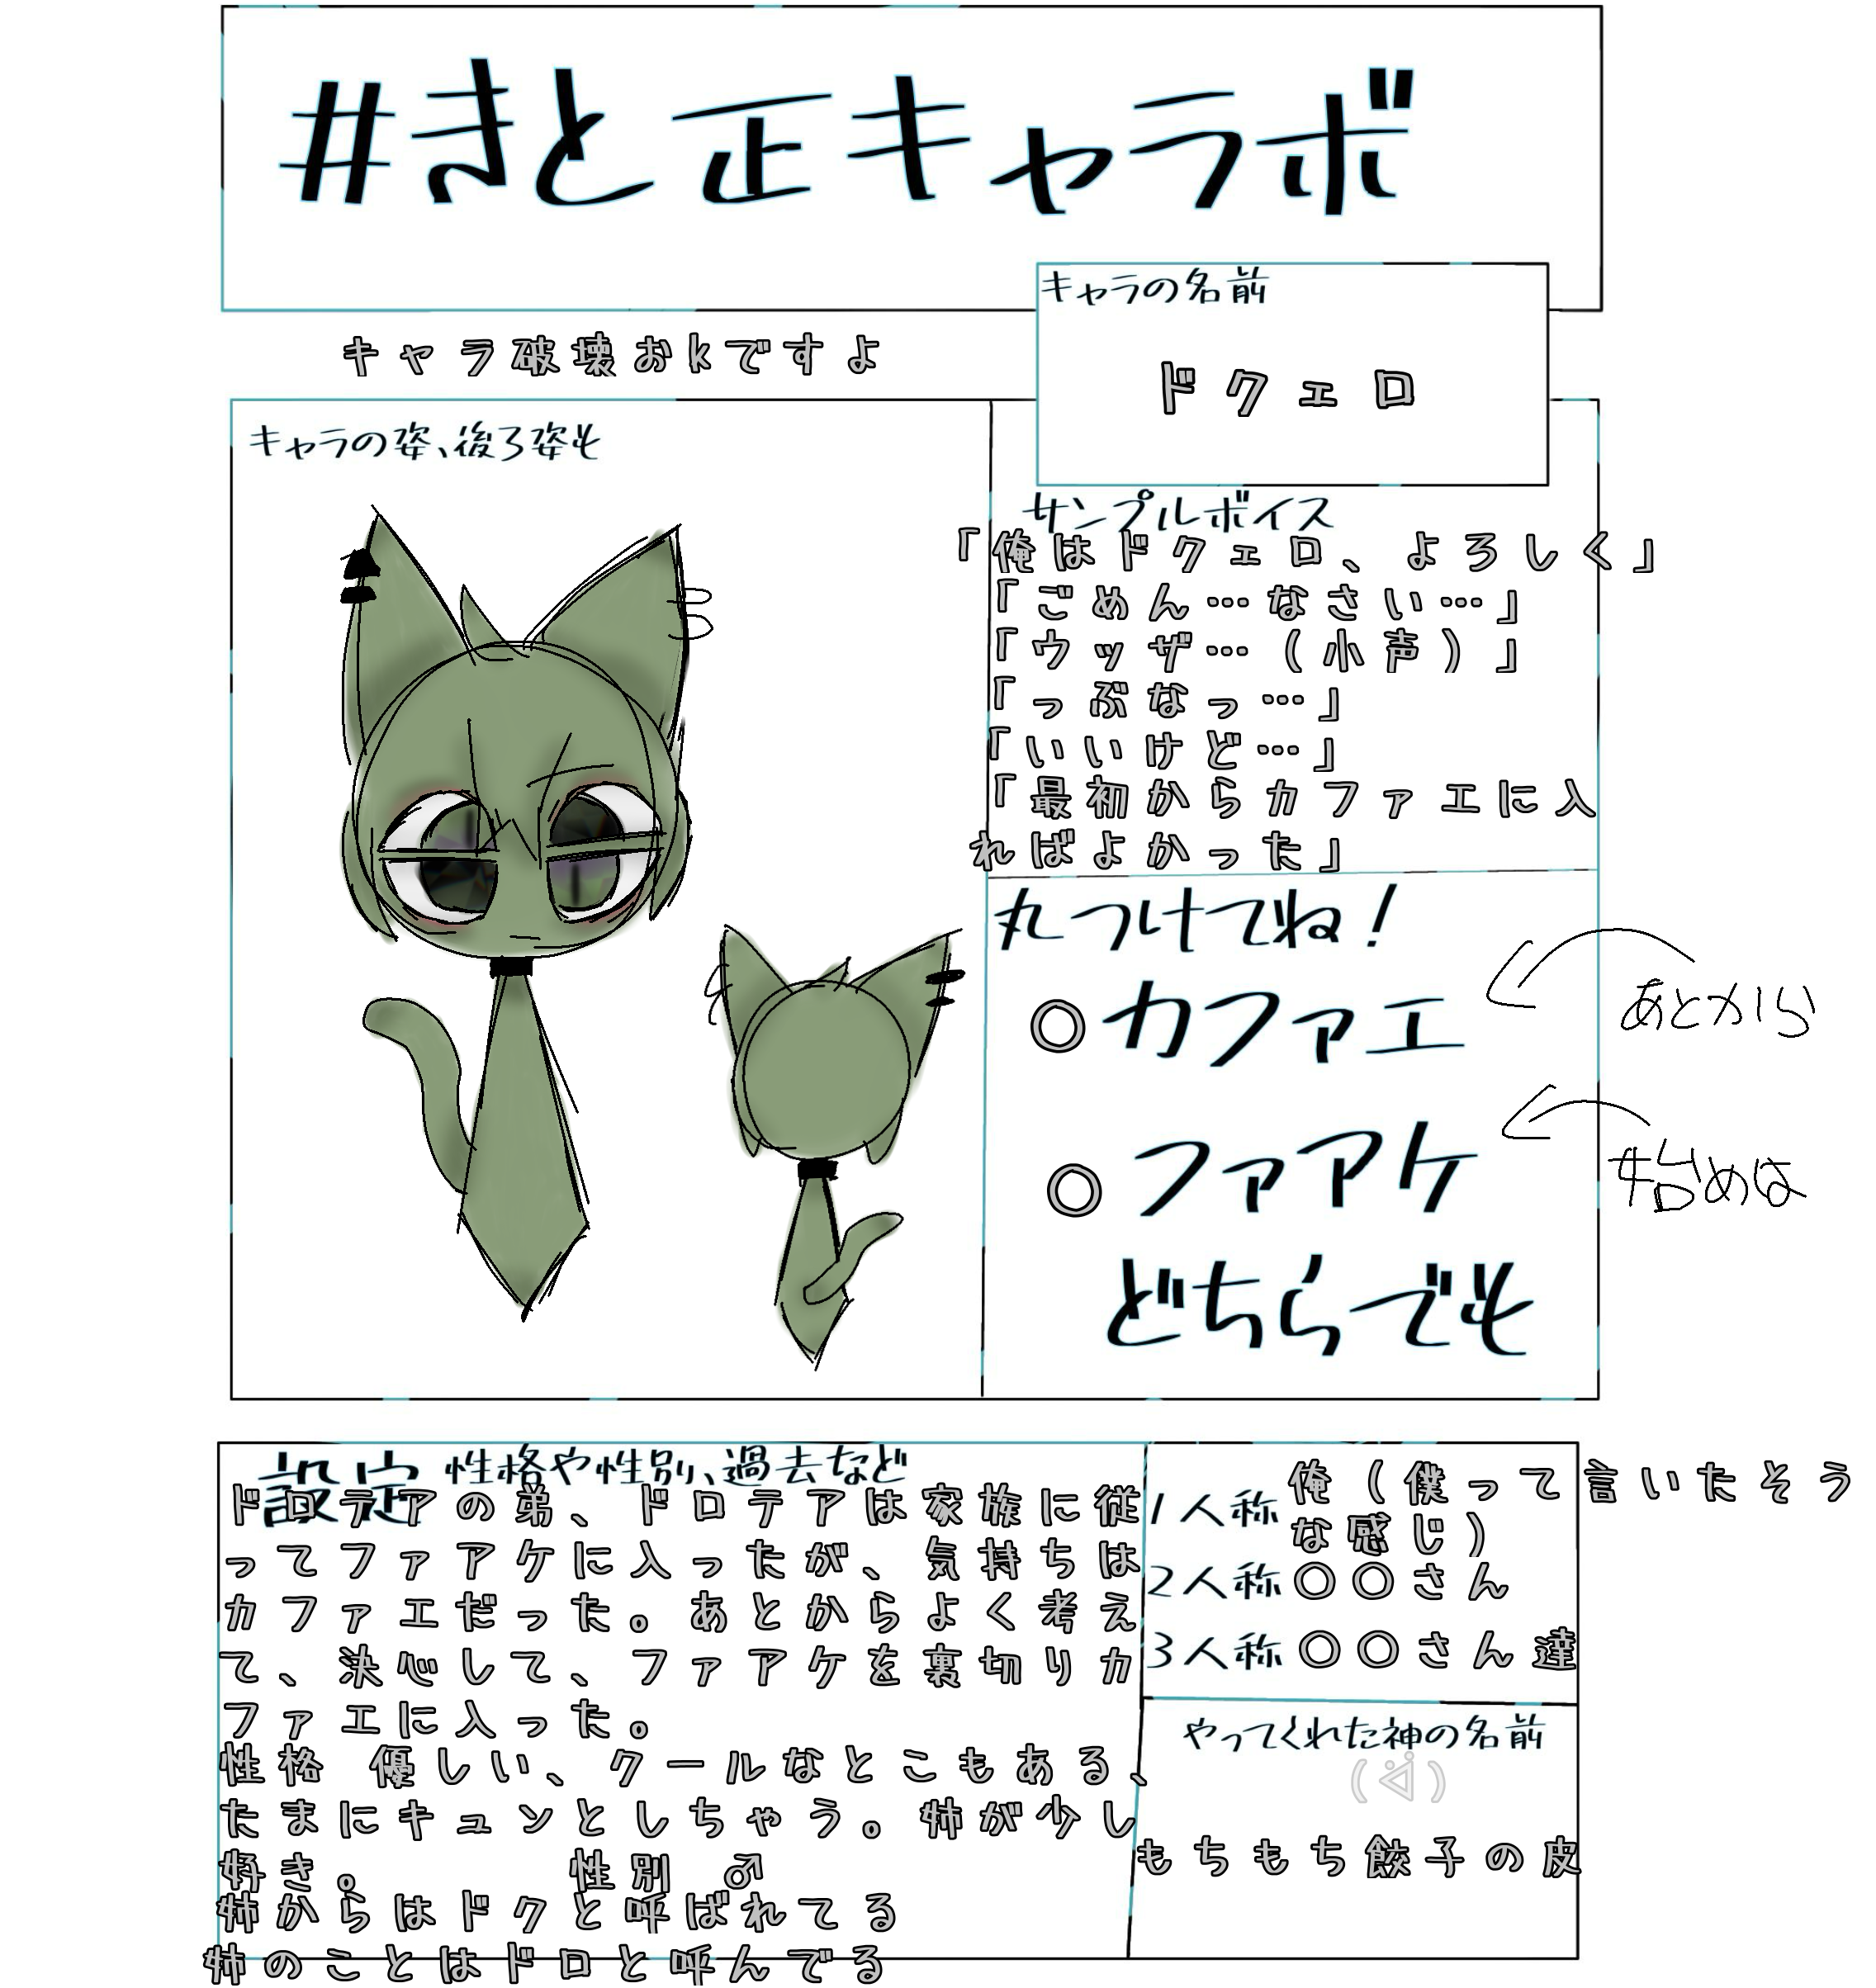 #きと正キャラボ
キャラの名前
ドクェロ
キャラ破壊おkですよ
キャラの姿、後ろ姿も
サンプルボイス
「俺はドクェロ、よろしく」
「ごめん…なさい…」
「ウッザ…(小声)」
「っぶなっ…」
「いいけど…」
「最初からカファエに入
ればよかった」
丸つけてね!
○カファエ
あとから
○ファアケ
始めは
どちらでも
設定 性格や性別、過去など
ドロテアの弟、ドロテアは家族に従
ってファアケに入ったが、気持ちは
カファエだった。あとからよく考え
て、決心して、ファアケを裏切りカ
ファエに入った。
性格 優しい、クールなとこもある、
たまにキュンとしちゃう。姉が少し
好き。 性別 ♂
姉からはドクと呼ばれてる
姉のことはドロと呼んでる
1人称 俺(僕って言いたそう
な感じ)
2人称 〇〇さん
3人称 〇〇さん達
やってくれた神の名前
もちもち餃子の皮